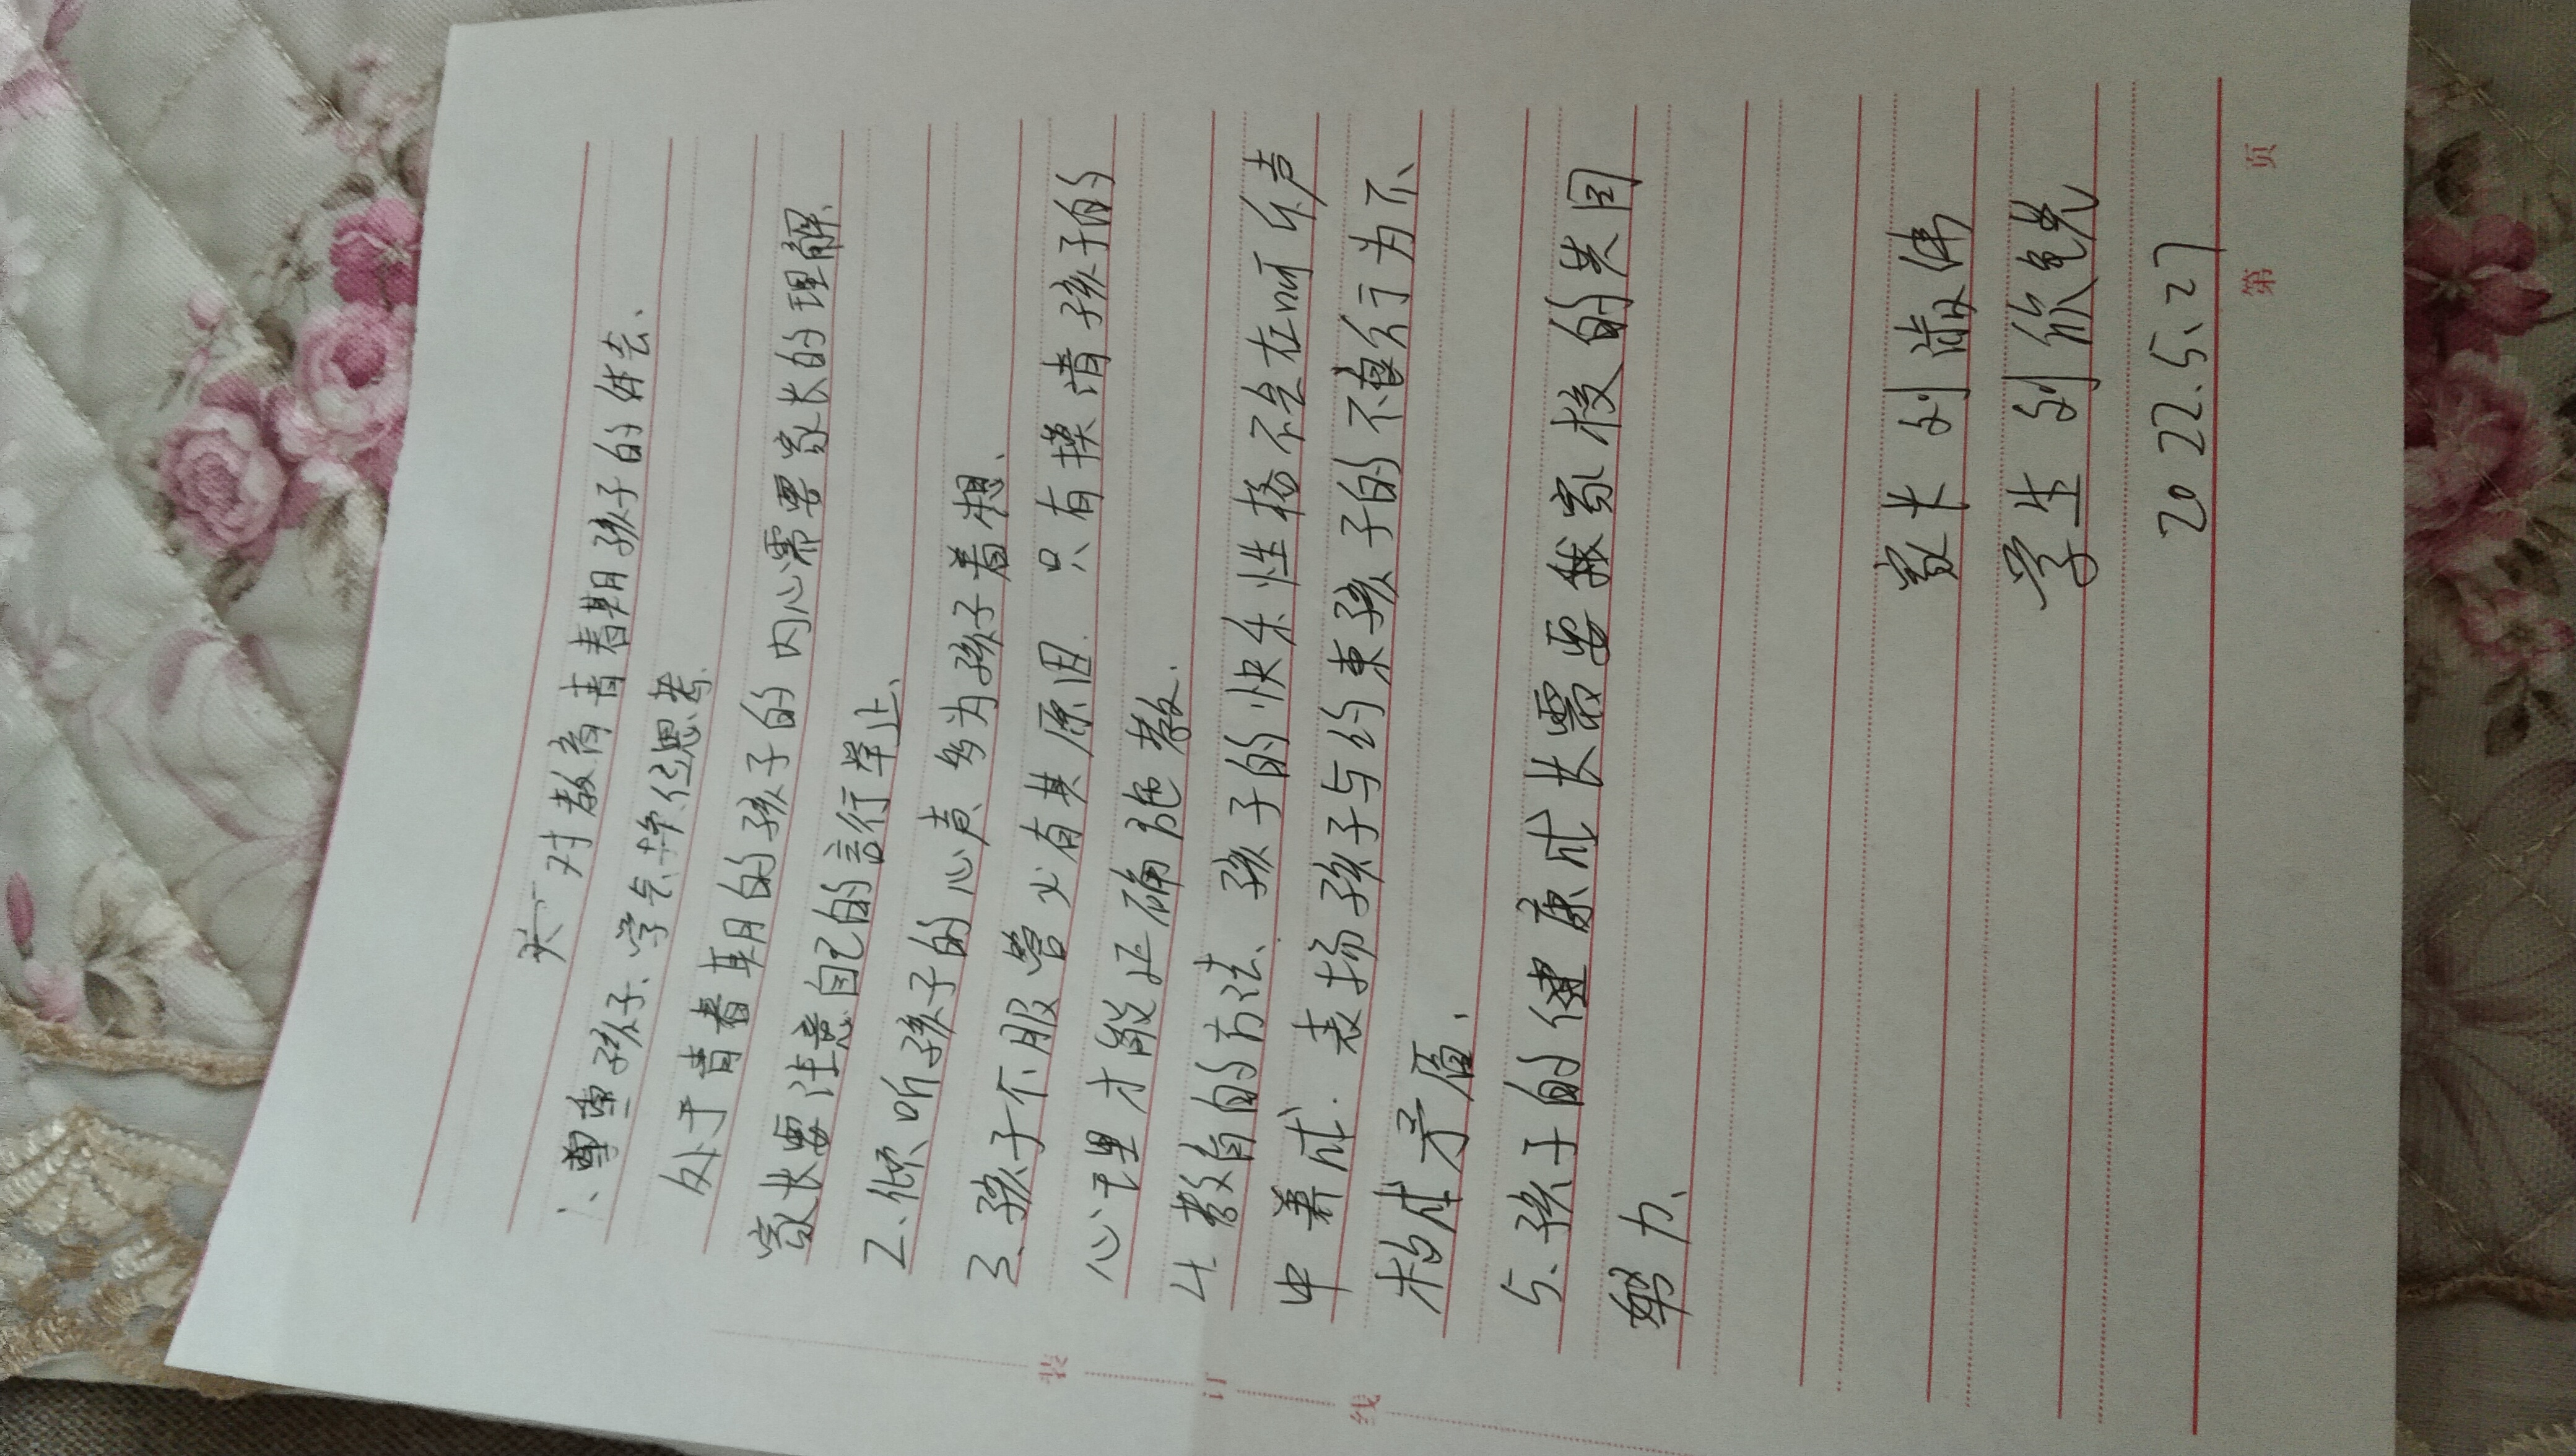 关于对教育青春期孩子的体会、
1、尊重孩子、学会换位思考.
处于青春期的孩子的内心需要家长的理解、
家长要注意自己的言行举止、
2、倾听孩子的心声 多为孩子着想、
3、孩子不服管必有其原因 只有摸清孩子的
心理才能正确施教.
4. 教育的方法、孩子的快乐性格不会在呵斥声
中养成. 表扬孩子与约束孩子的不良行为不
构成矛盾.
5、孩子的健康成长需要我家校的共同
努力、
家长 刘 伟
学生 刘欣
2022.5.27
第 页
装
订
线